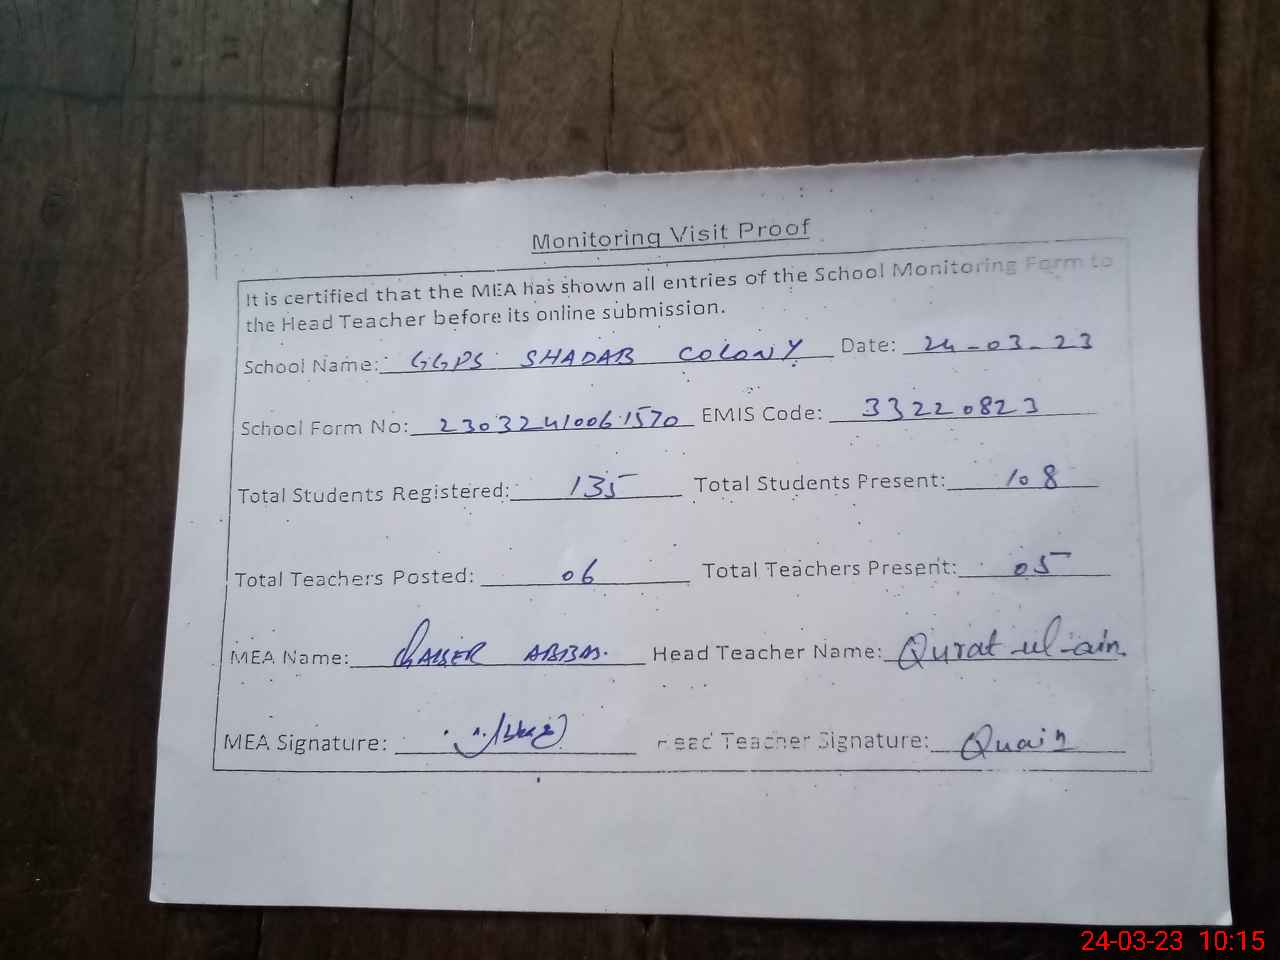 Monitoring Visit Proof
It is certified that the MEA has shown all entries of the School Monitoring Form to
the Head Teacher before its online submission.
School Name: GGPS SHADAB COLONY Date: 24-03-23
School Form No: 23032410061570 EMIS Code: 33220823
Total Students Registered: 135 Total Students Present: 108
Total Teachers Posted: 06 Total Teachers Present: 05
MEA Name: QAISER ABBAS. Head Teacher Name: Qurat-ul-ain.
MEA Signature: Head Teacher Signature: Quain
24-03-23 10:15